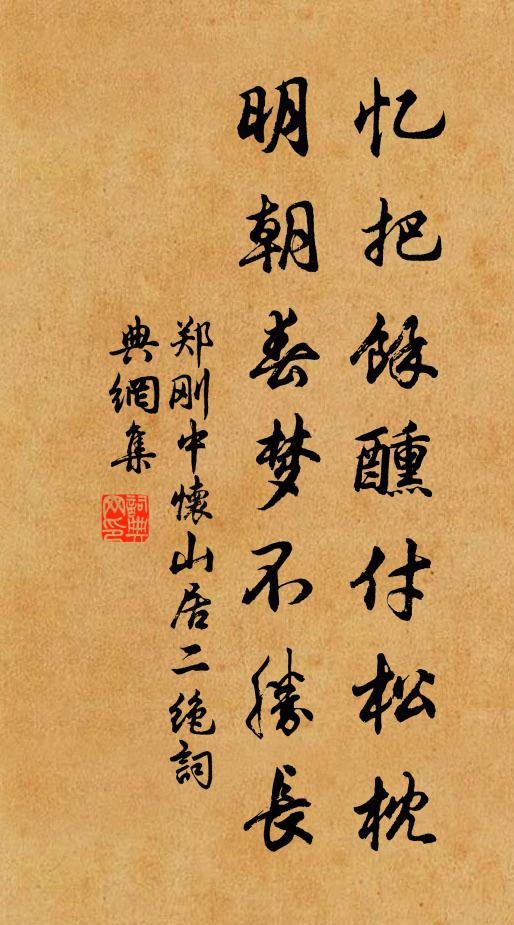 忆把馀醺付松枕
明朝春梦不勝長
郑刚中懷山居二绝詞
典網集
詞典
网印